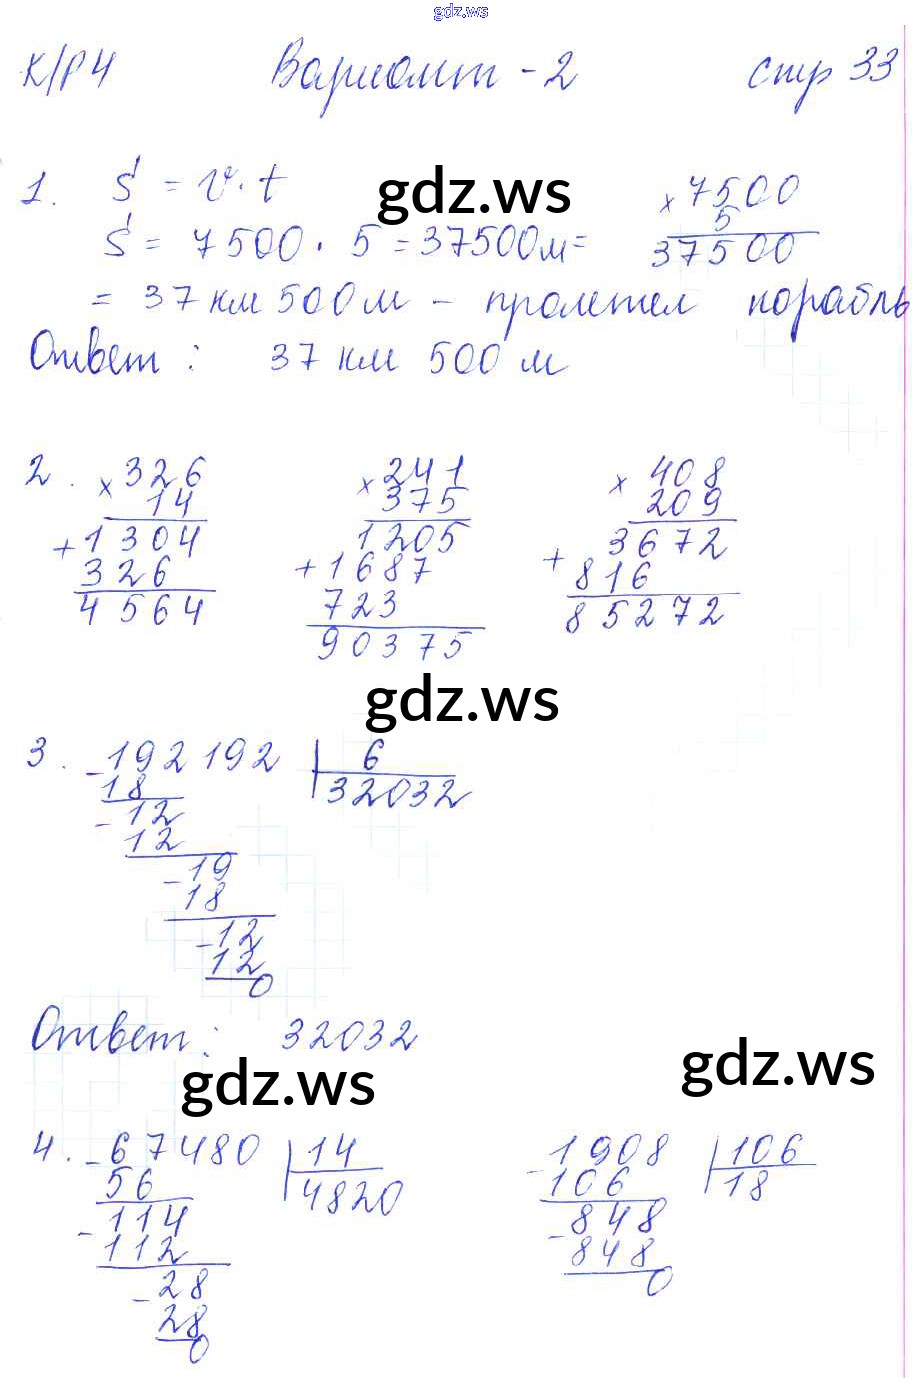 gdz.ws
К/Р 4 Вариант - 2 стр 33
1. S = v · t gdz.ws × 7500
S = 7500 · 5 = 37500 м = 5
37500
= 37 км 500 м - пролетел корабль
Ответ : 37 км 500 м
2. × 326 × 241 × 408
14 375 209
+ 1304 1205 3672
326 + 1687 + 816
4564 723 85272
90375
gdz.ws
3. - 192192 | 6
18 32032
- 12
12
- 19
18
- 12
12
0
Ответ : 32032
gdz.ws gdz.ws
4. - 67480 | 14 - 1908 | 106
56 4820 106 18
- 114 - 848
112 848
- 28 0
28
0